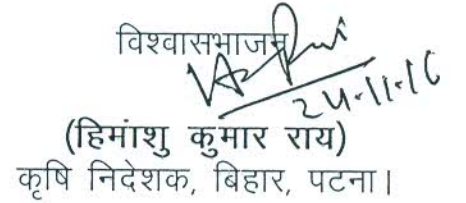 विश्वासभाजन
24-11-16
(हिमांशु कुमार राय)
कृषि निदेशक, बिहार, पटना।